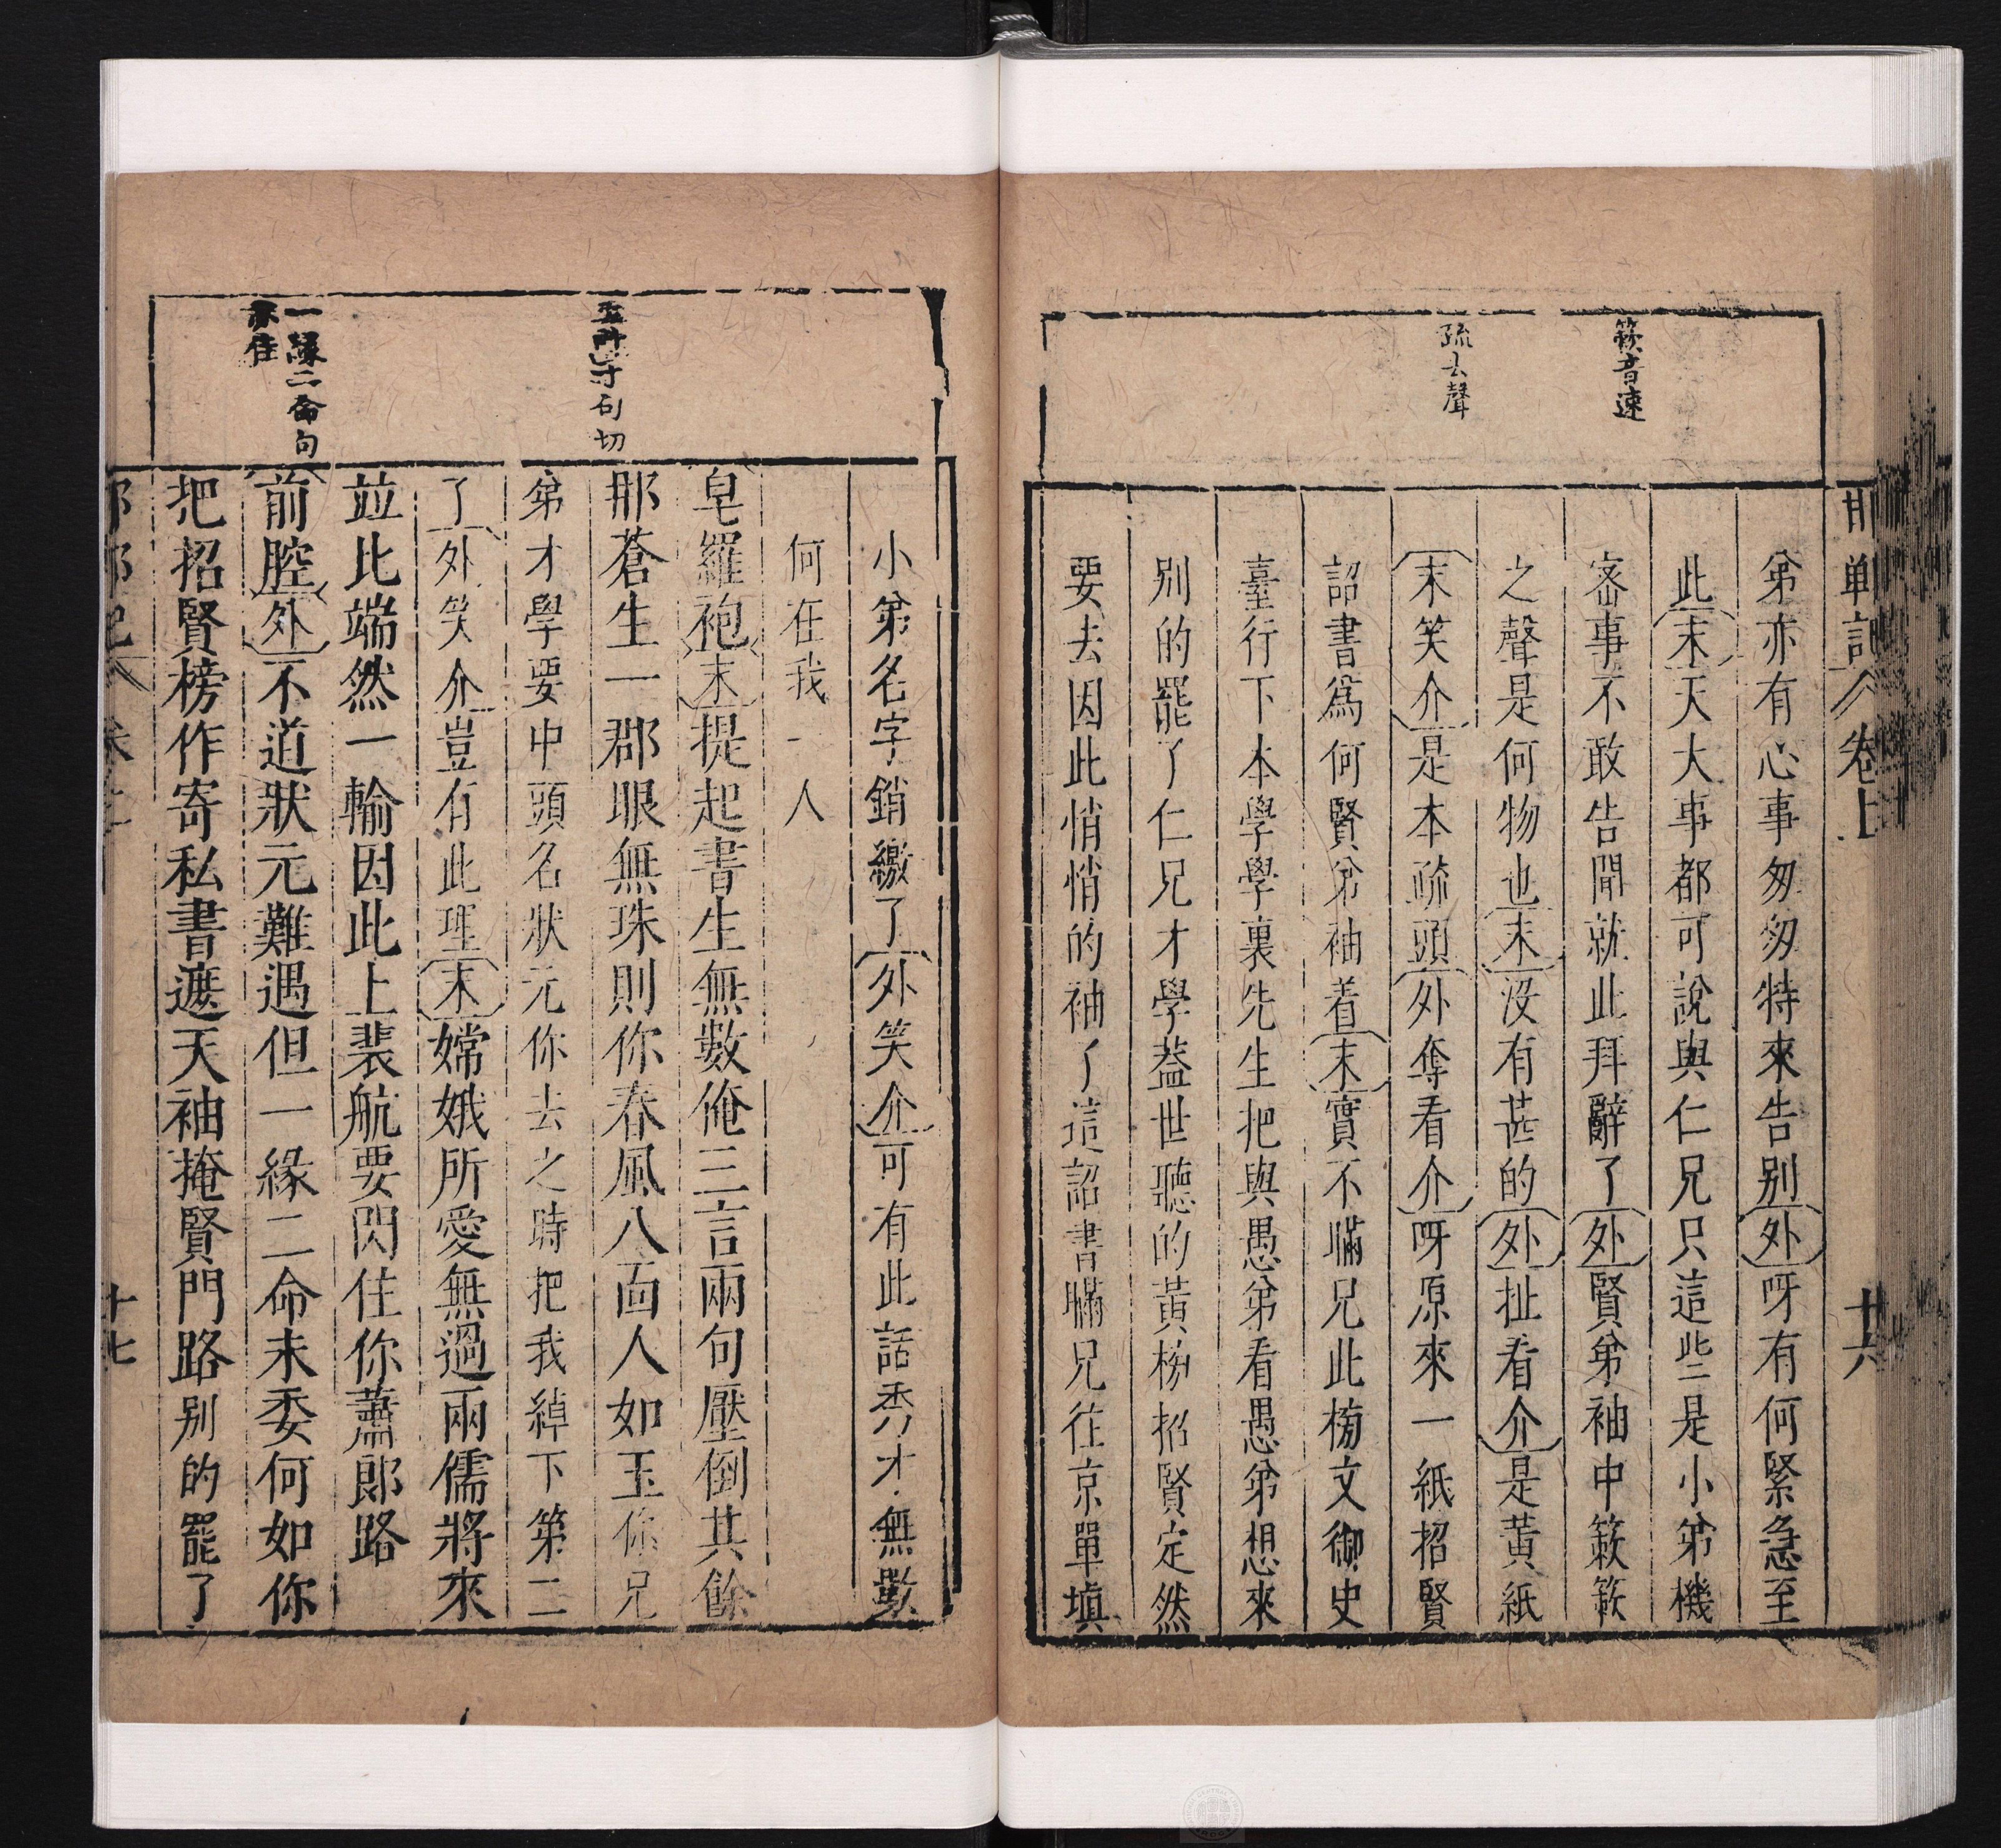 邯單記 卷上 十六
簌音速
疏去聲
弟亦有心事匆匆特來告別外呀有何緊急至
此末天大事都可說與仁兄只這些是小弟機
密事不敢告聞就此拜辭了外賢弟袖中簌簌
之聲是何物也末沒有甚的外扯看介是黃紙
末笑介是本疏頭外奪看介呀原來一紙招賢
詔書爲何賢弟袖着末實不瞞兄此榜文御史
臺行下本學學裏先生把與愚弟看愚弟想來
別的罷了仁兄才學蓋世聽的黃榜招賢定然
要去因此悄悄的袖了這詔書瞞兄往京單塡
一緣二命句
亦佳
小弟名字銷繳了外笑介可有此話秀才無數
何在我一人
皂羅袍末提起書生無數俺三言兩句壓倒其餘
那蒼生一郡眼無珠則你春風八面人如玉你兄
弟才學要中頭名狀元你去之時把我綽下第二
了外笑介豈有此理末嫦娥所愛無過兩儒將來
竝比端然一輪因此上裴航要閃住你蕭郎路
前腔外不道狀元難遇但一緣二命未委何如你
把招賢榜作寄私書遮天袖掩賢門路別的罷了
十七